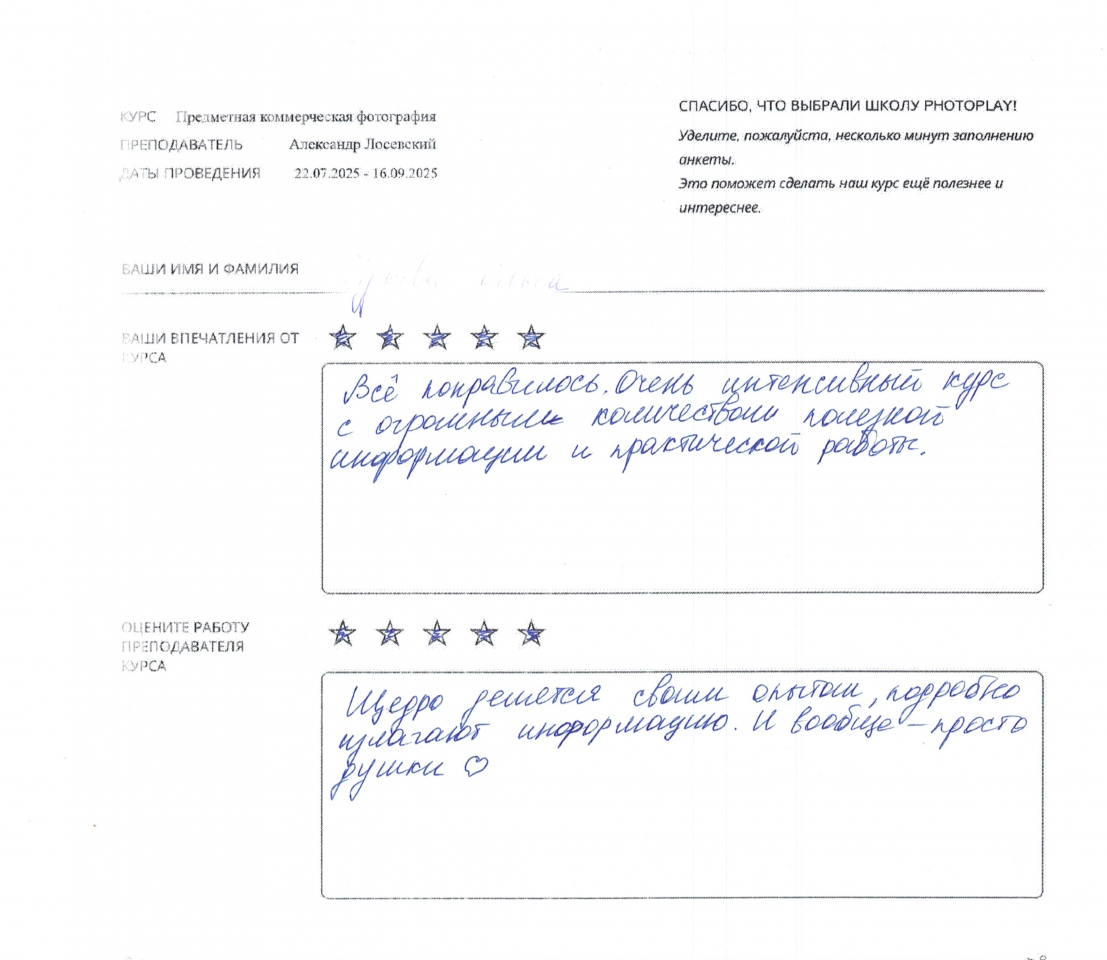 КУРС Предметная коммерческая фотография
ПРЕПОДАВАТЕЛЬ Александр Лосевский
ДАТЫ ПРОВЕДЕНИЯ 22.07.2025 - 16.09.2025
СПАСИБО, ЧТО ВЫБРАЛИ ШКОЛУ PHOTOPLAY!
Уделите, пожалуйста, несколько минут заполнению
анкеты.
Это поможет сделать наш курс ещё полезнее и
интереснее.
ВАШИ ИМЯ И ФАМИЛИЯ
ВАШИ ВПЕЧАТЛЕНИЯ ОТ
КУРСА
Всё понравилось. Очень интенсивный курс
с огромным количеством полезной
информации и практической работы.
ОЦЕНИТЕ РАБОТУ
ПРЕПОДАВАТЕЛЯ
КУРСА
Щедро делятся своим опытом, подробно
излагают информацию. И вообще – просто
душки ♡